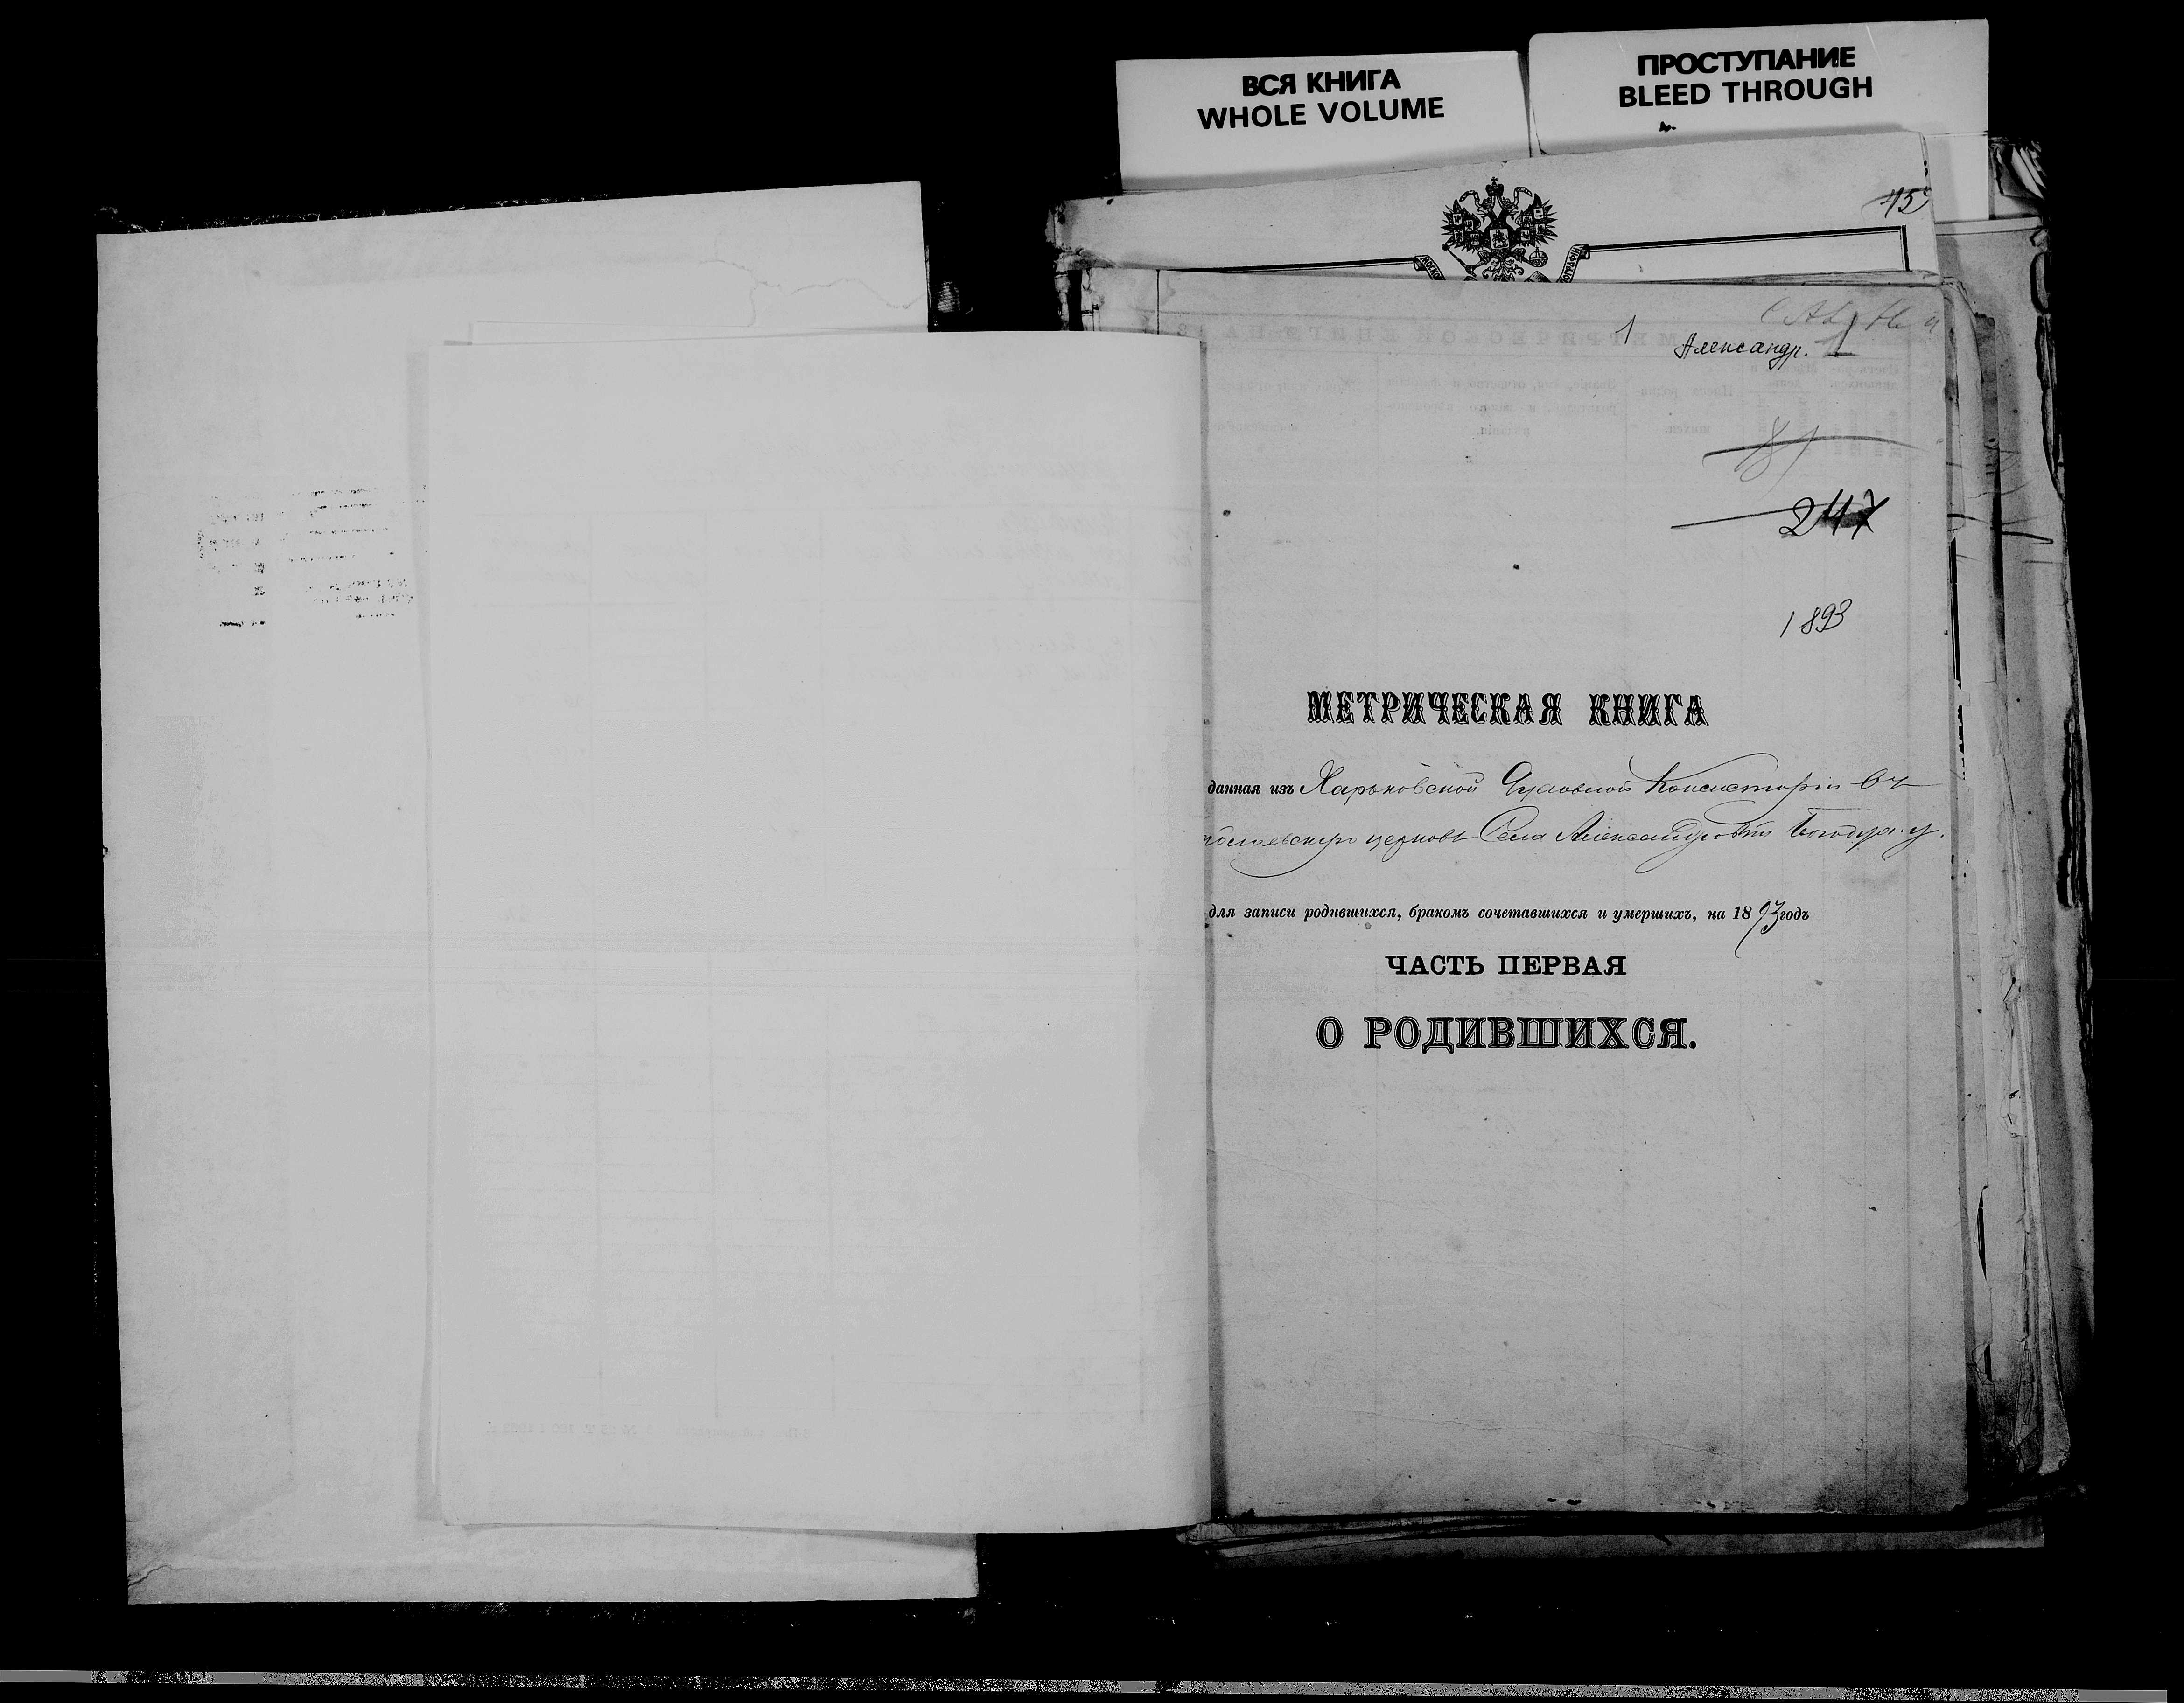 ВСЯ КНИГА
WHOLE VOLUME
ПРОСТУПАНИЕ
BLEED THROUGH
15
1
Александр.
1
247
1893
МЕТРИЧЕСКАЯ КНИГА
данная изъ Харьковской Духовной Консисторіи въ
церковь Села Александровки Богодух. у.
для записи родившихся, бракомъ сочетавшихся и умершихъ, на 1893 годъ
ЧАСТЬ ПЕРВАЯ
О РОДИВШИХСЯ.